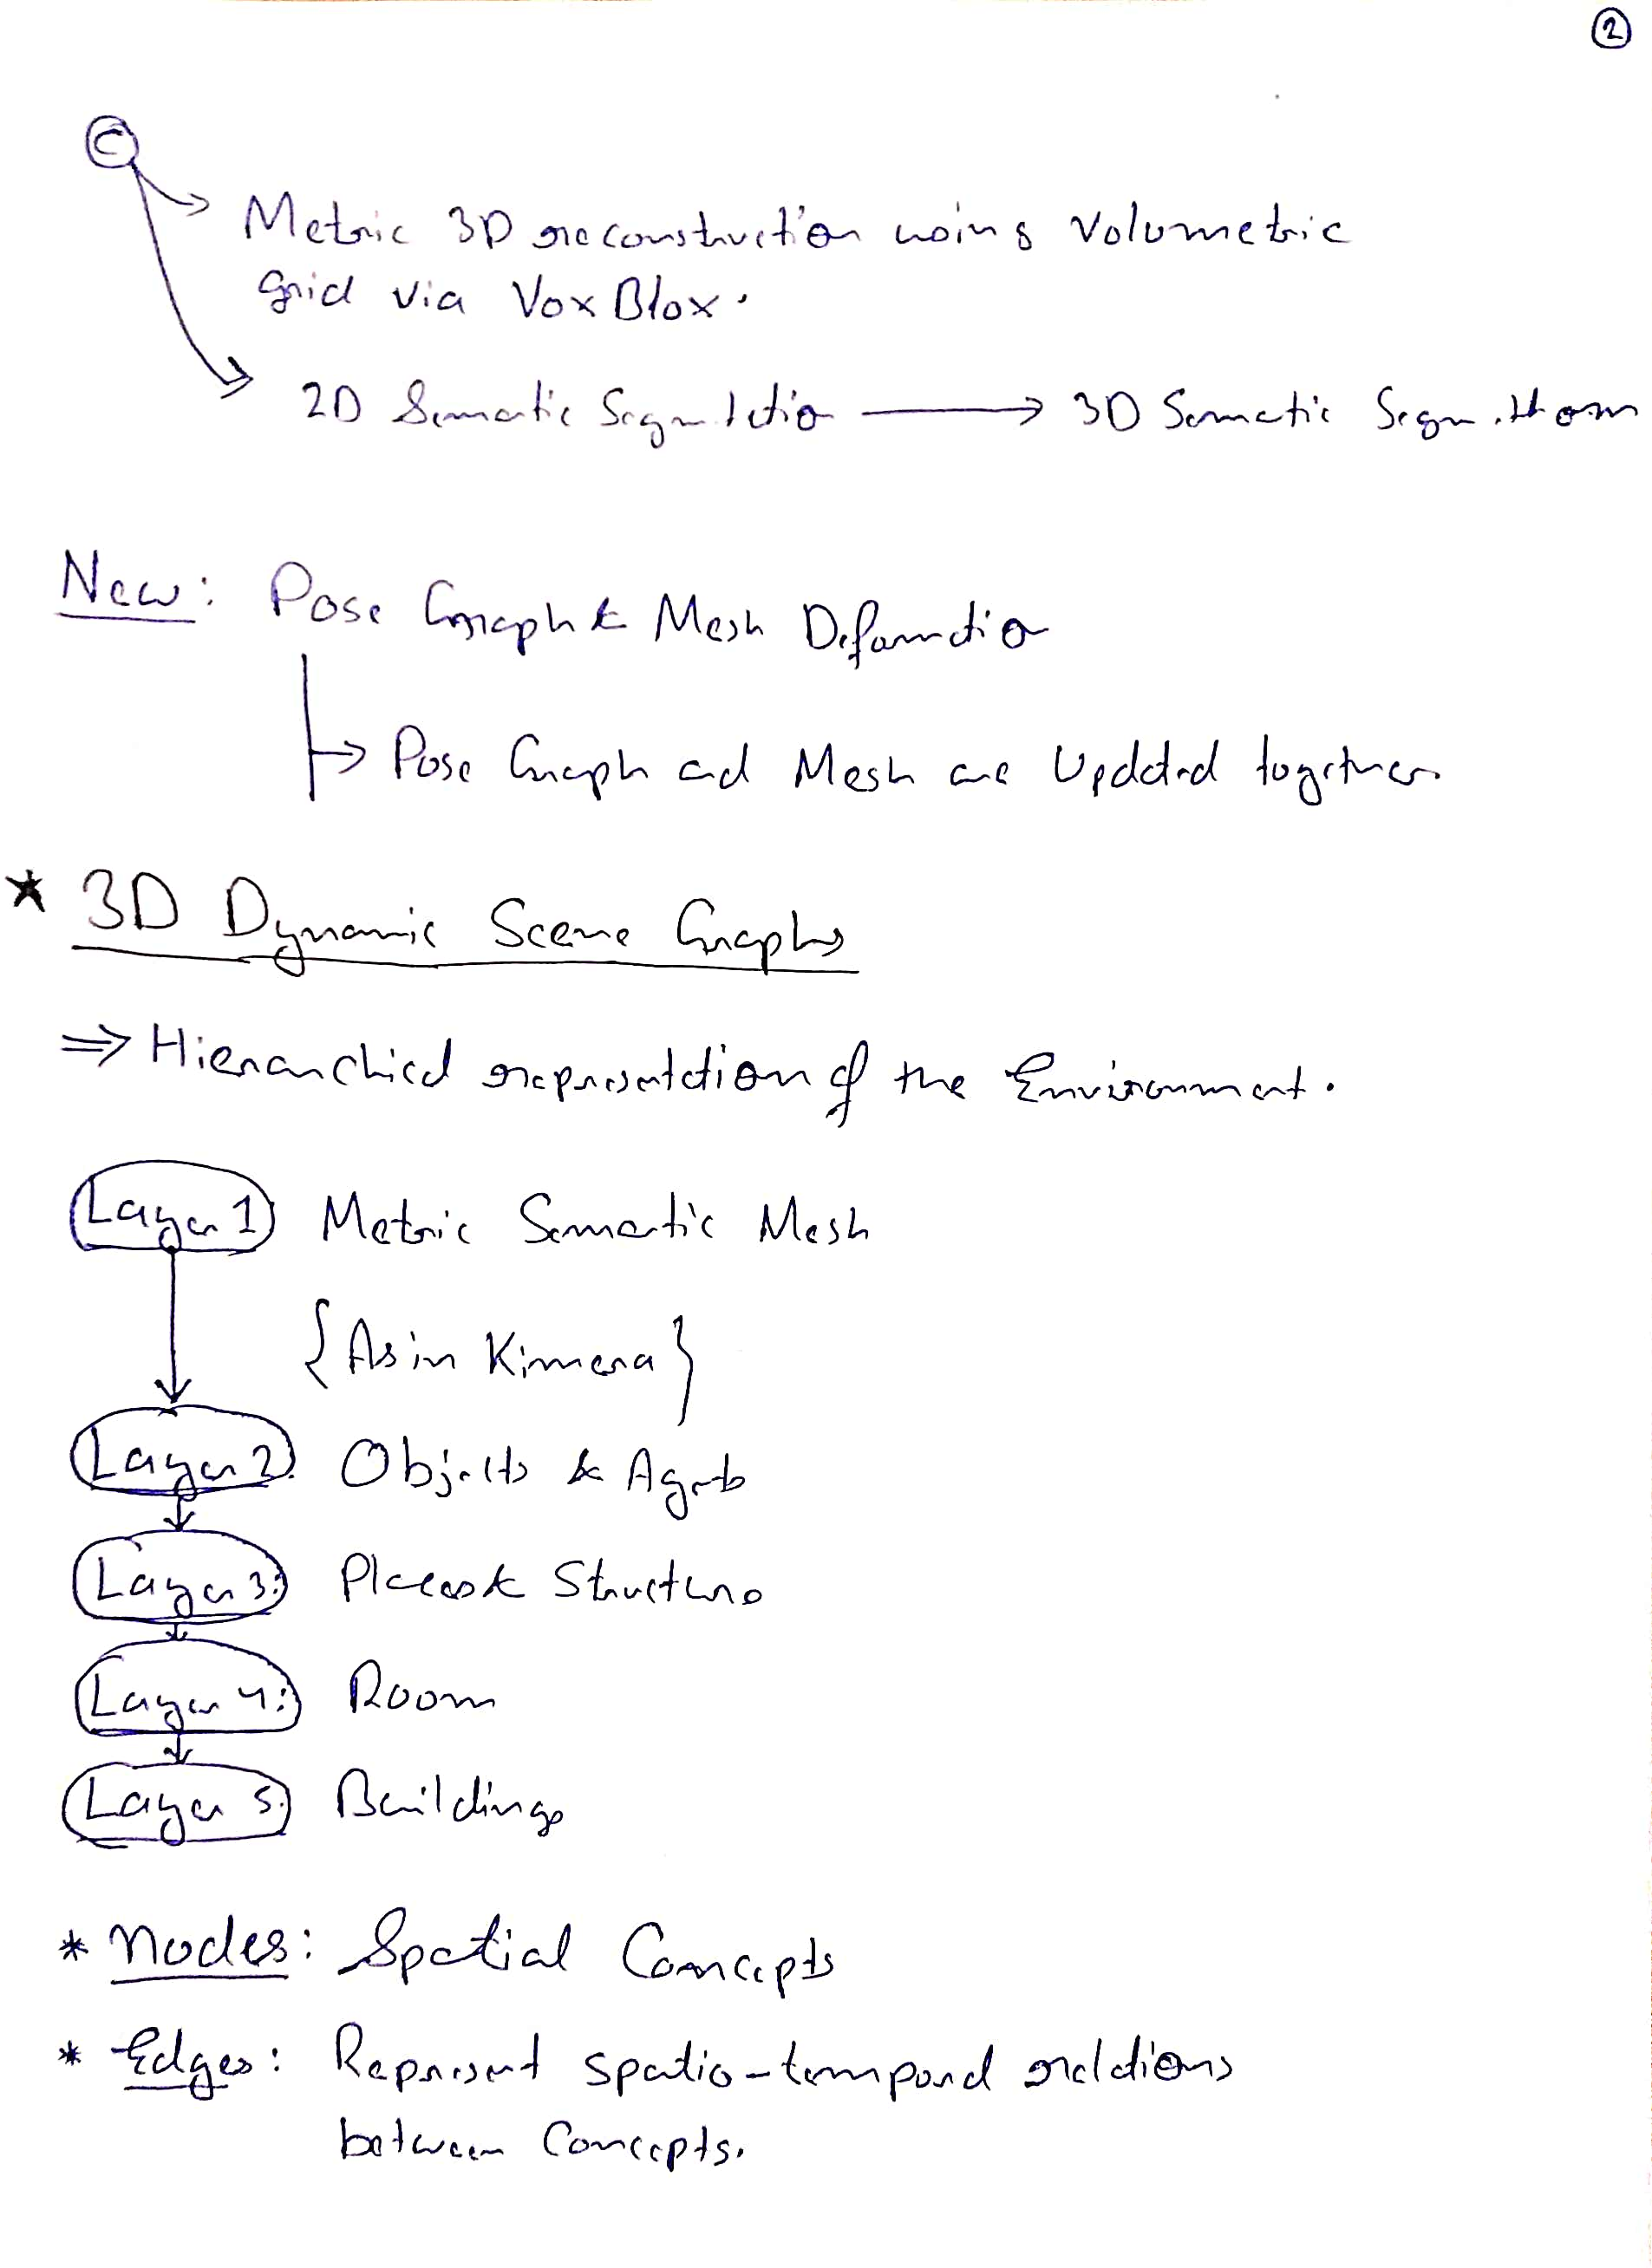 2
C
Metric 3D reconstruction using Volumetric
Grid via VoxBlox.
2D Semantic Segmentation → 3D Semantic Segmentation
New: Pose Graph & Mesh Deformation
→ Pose Graph and Mesh are Updated together
* 3D Dynamic Scene Graphs
⇒ Hierarchical representation of the Environment.
Layer 1 Metric Semantic Mesh
{As in Kimera}
Layer 2: Objects & Agents
Layer 3: Places & Structures
Layer 4: Room
Layer 5: Buildings
* Nodes: Spatial Concepts
* Edges: Represent spatio-temporal relations
between Concepts.